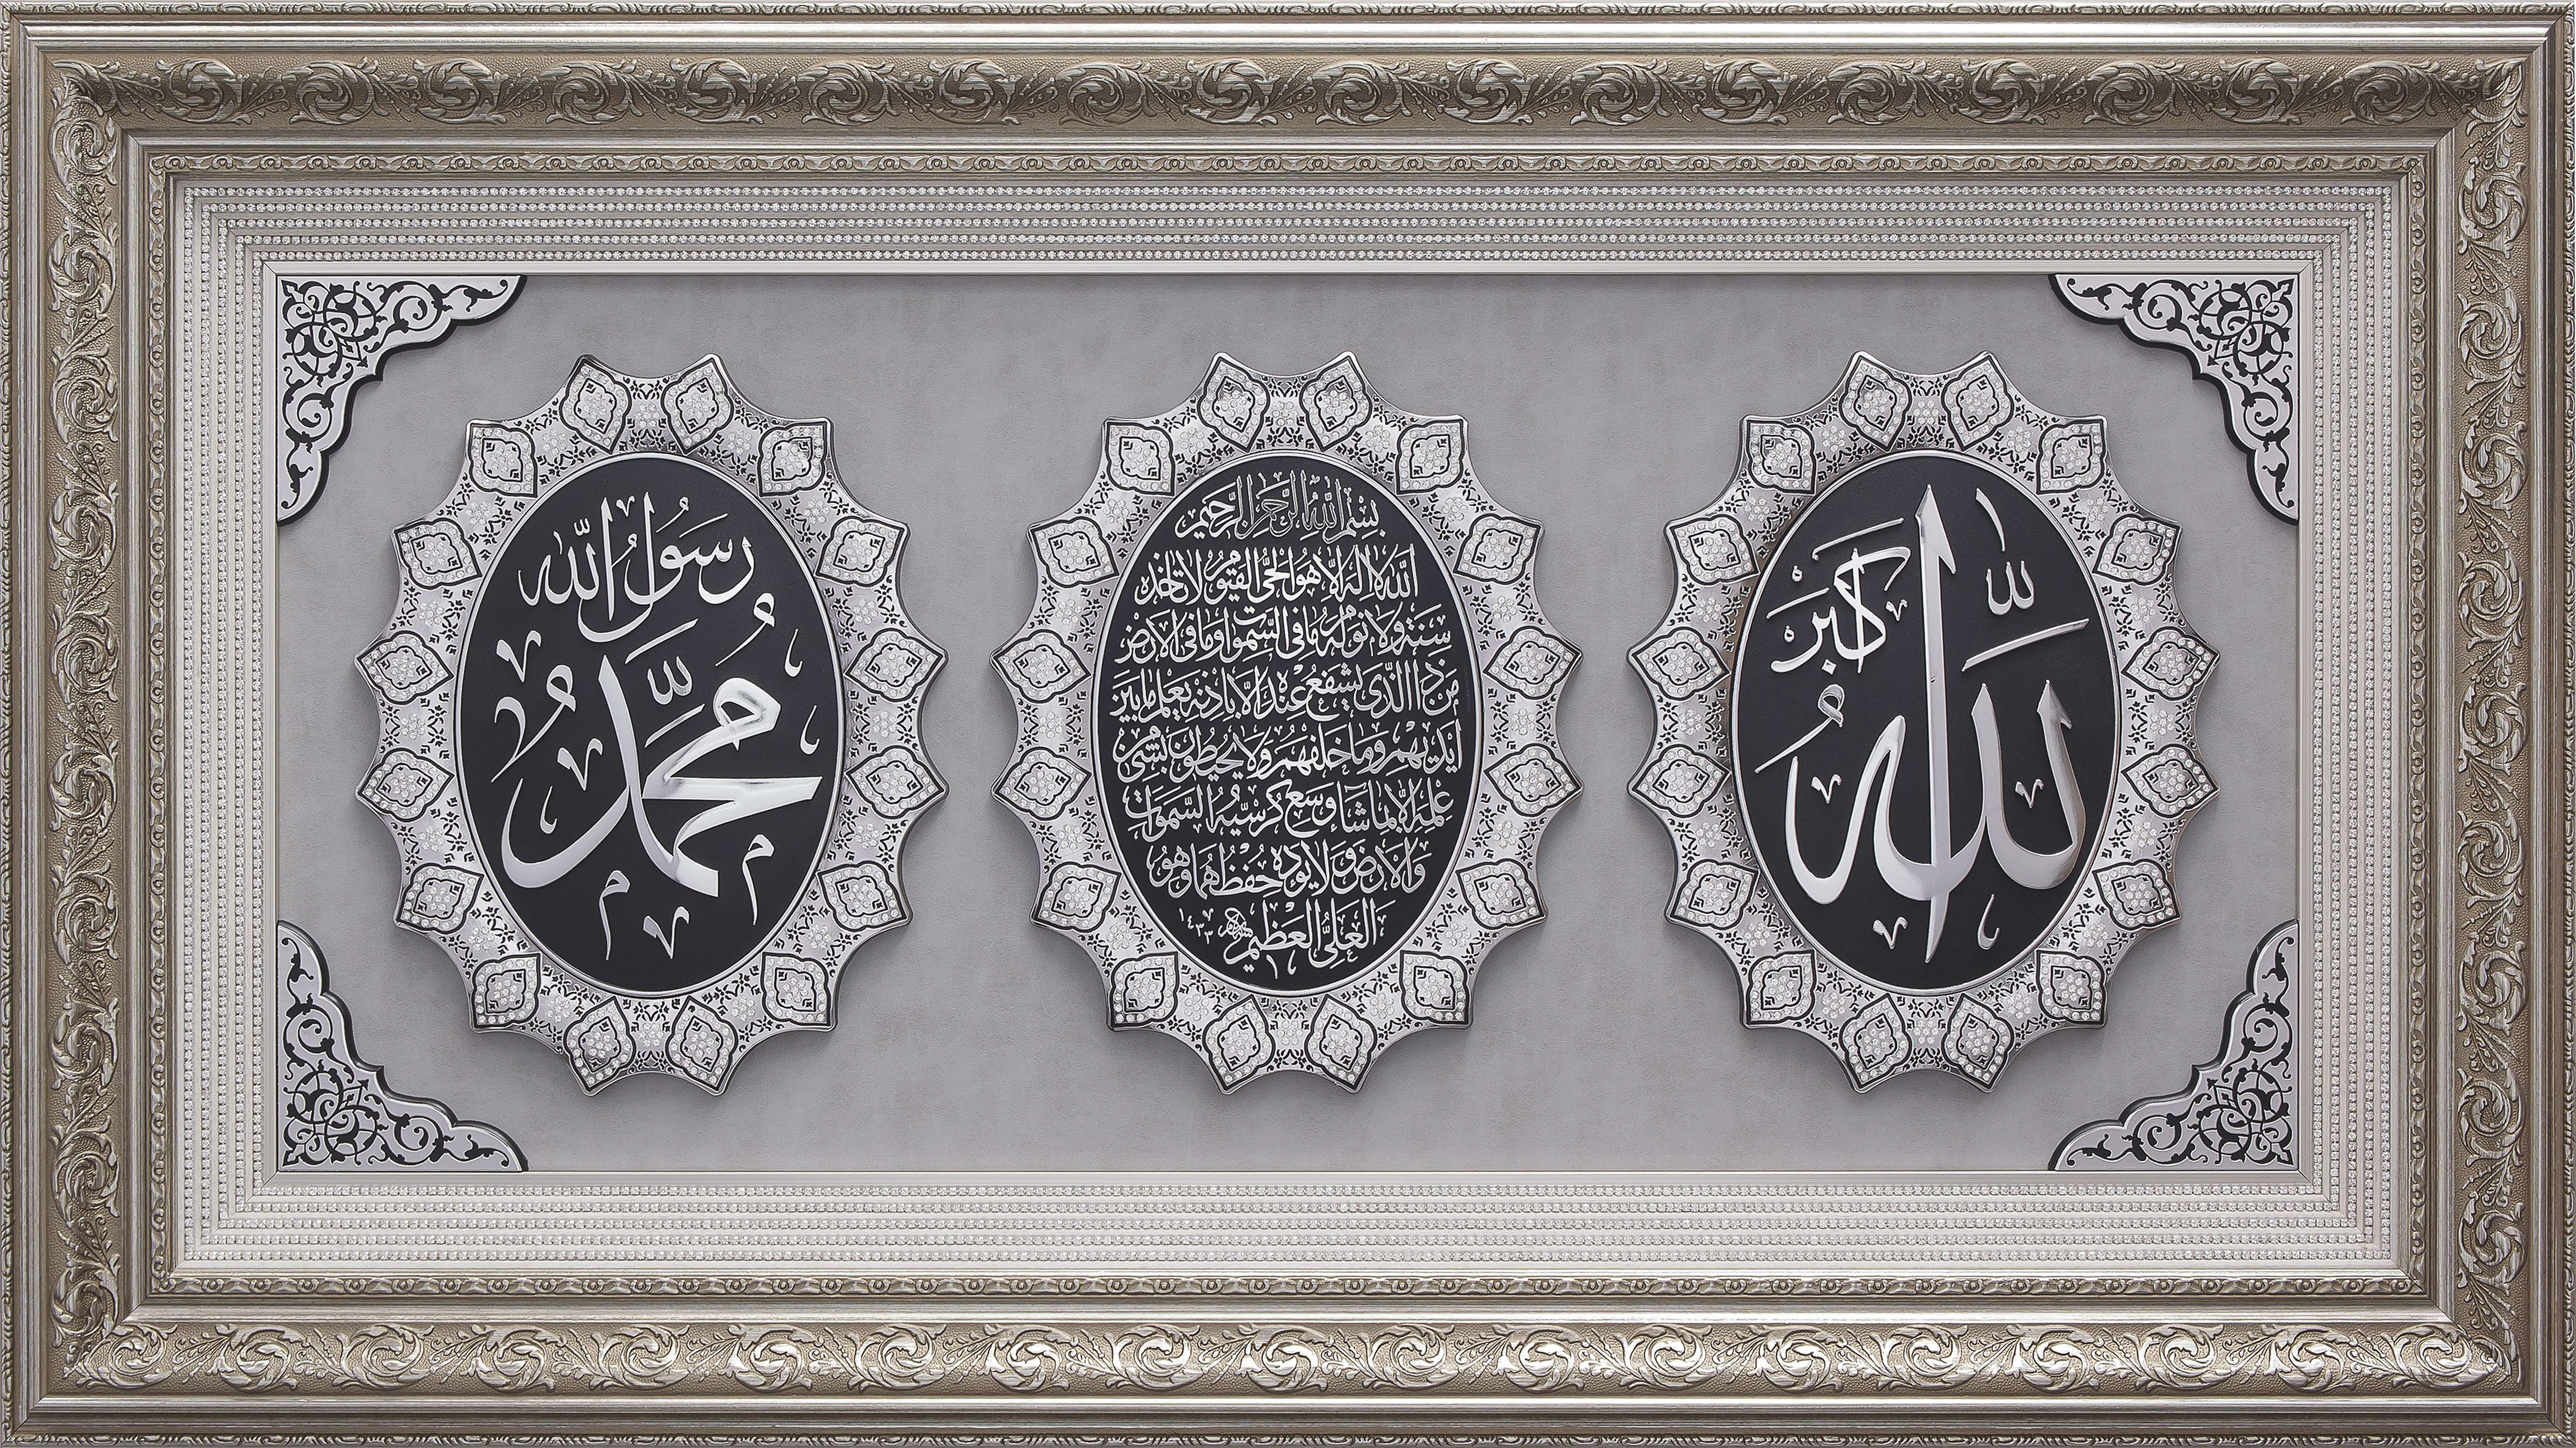 الله
أكبر
بسم الله الرحمن الرحيم
الله لا إله إلا هو الحي القيوم لا تأخذه
سنة ولا نوم له ما في السموات وما في الأرض
من ذا الذي يشفع عنده إلا بإذنه يعلم ما بين
أيديهم وما خلفهم ولا يحيطون بشيء من
علمه إلا بما شاء وسع كرسيه السموات
والأرض ولا يؤده حفظهما وهو
العلي العظيم ١٤٣٣
رسول الله
محمد